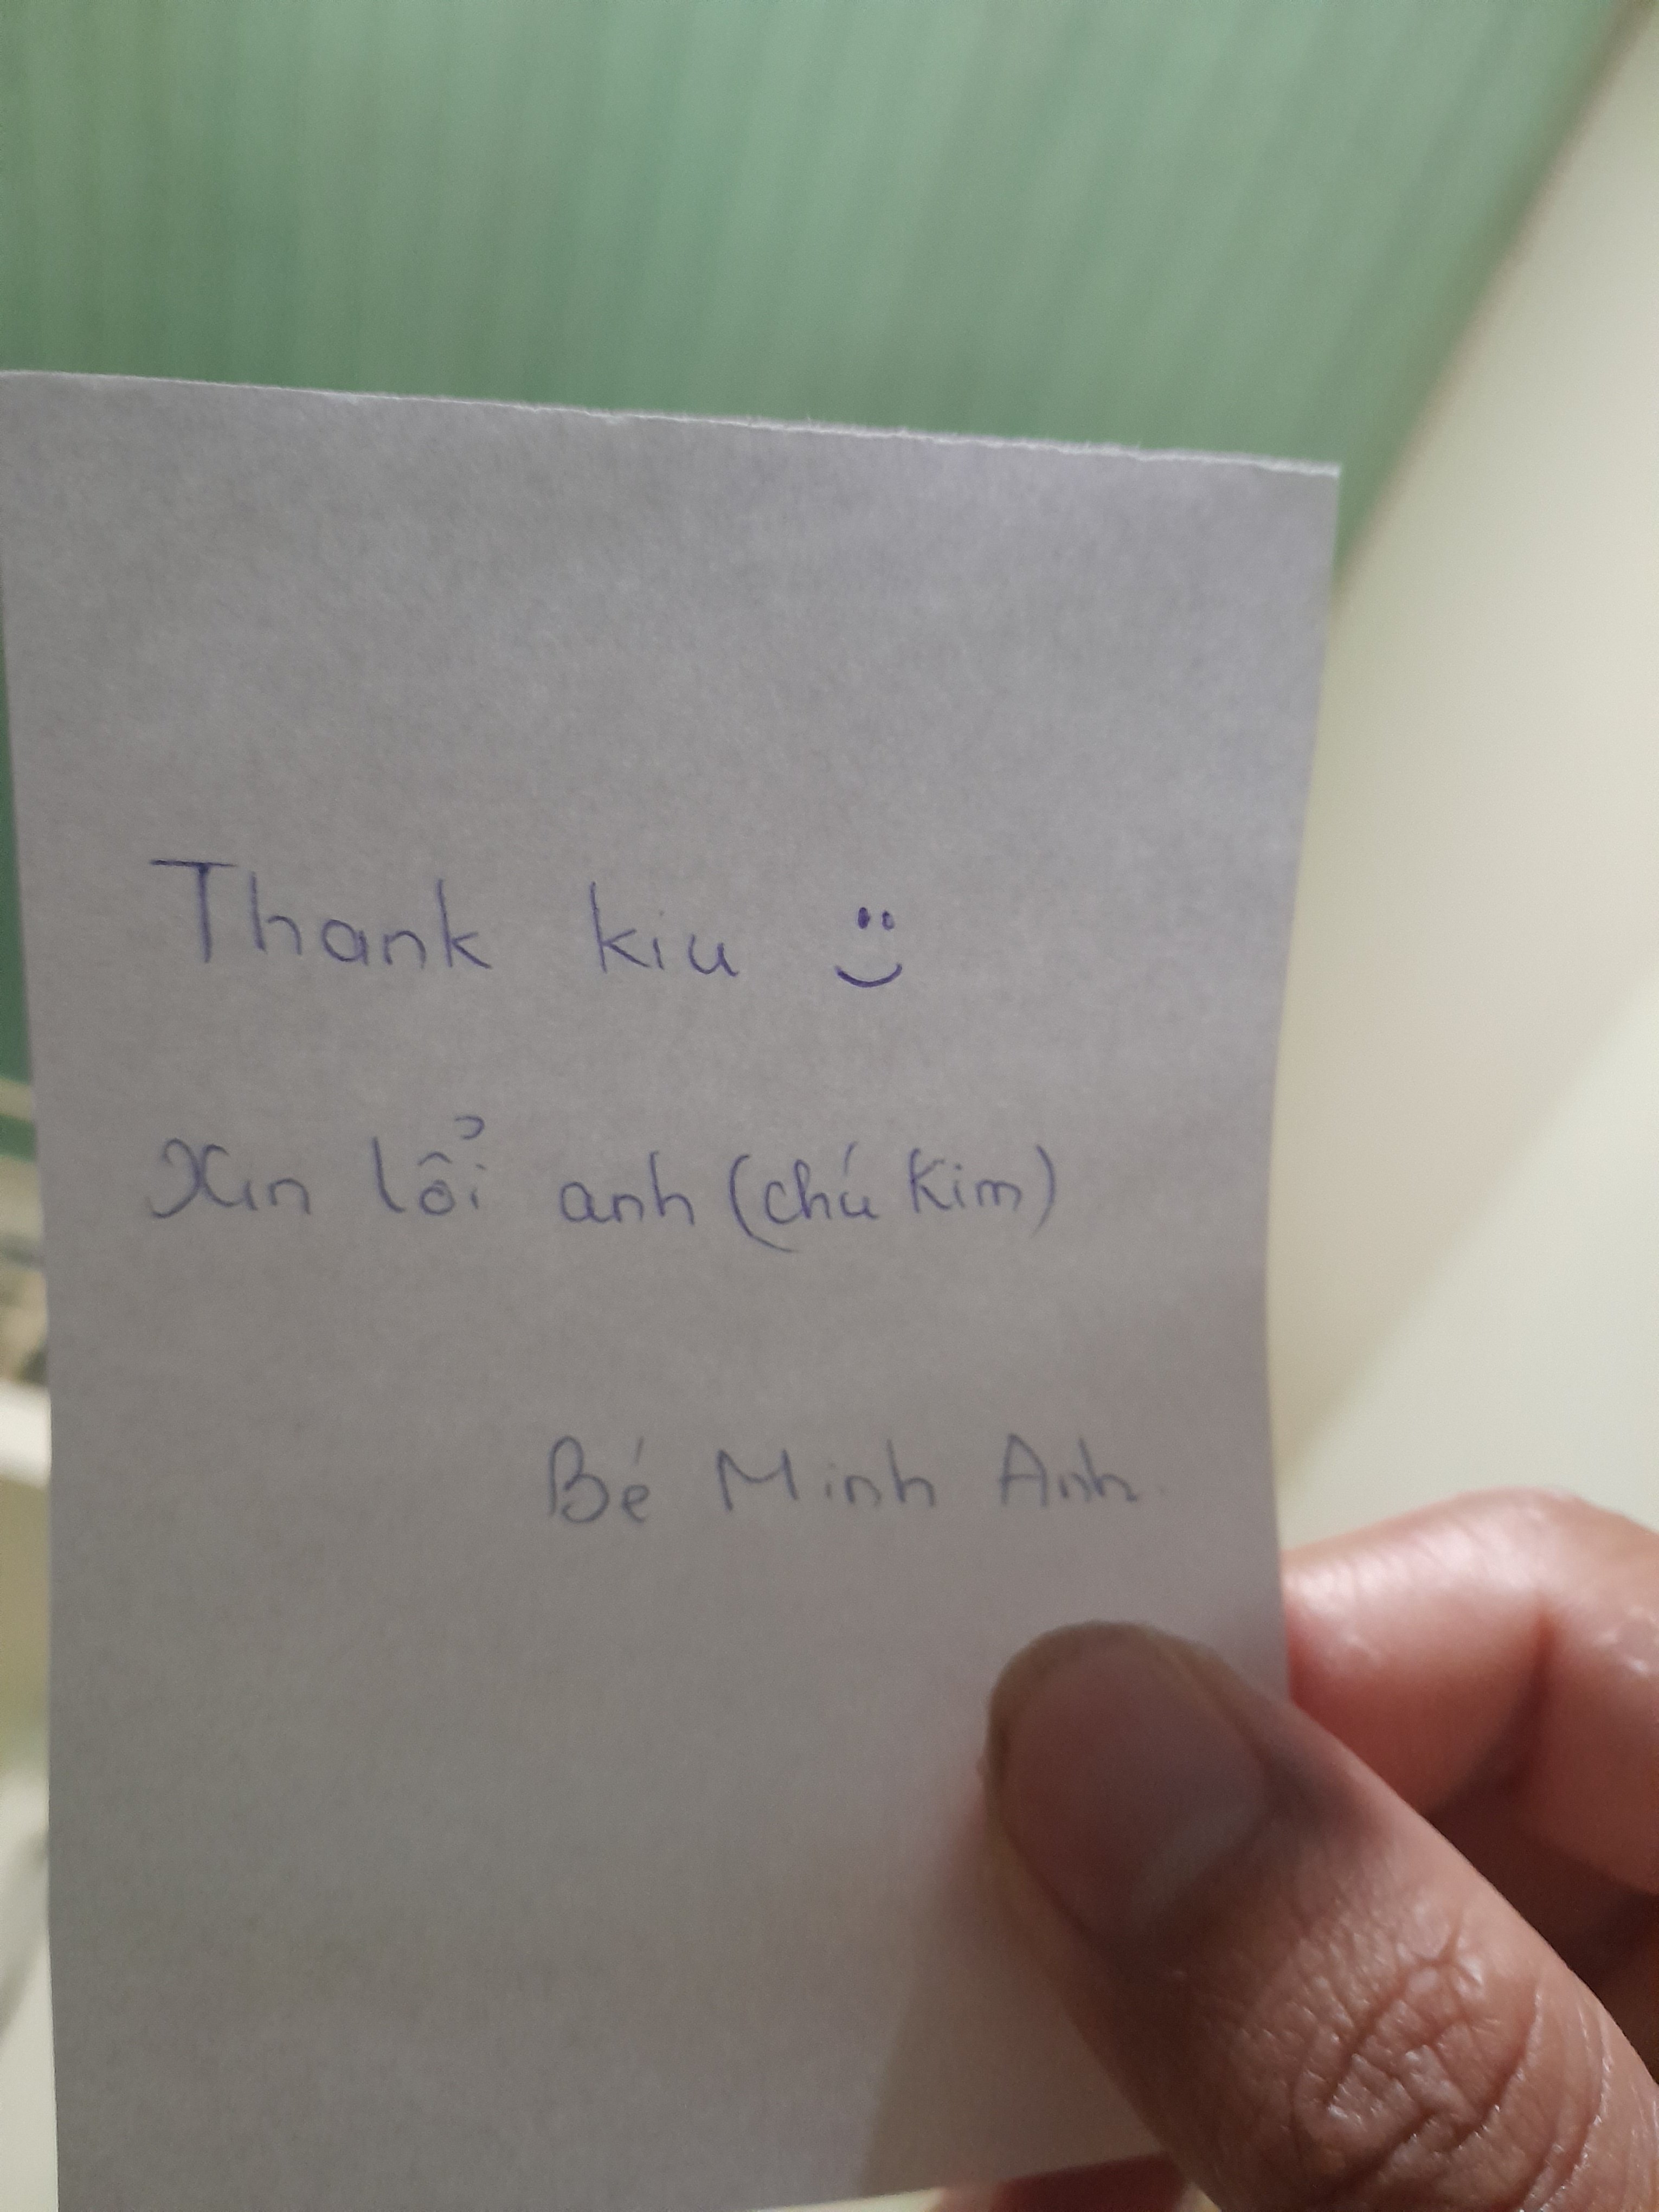 Thank kiu :)
Xin lổi anh (chú Kim)
Bé Minh Anh.